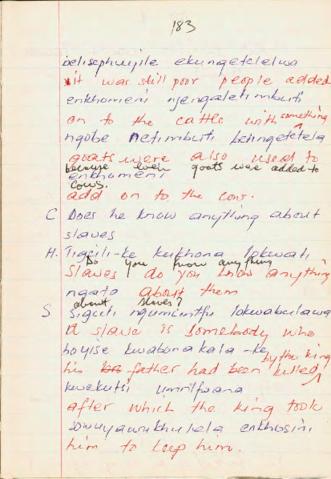 183
belisephuyile ekungetelelwa
it was still poor people added
enkhomeni njengaletimbuti
something
on to the cattle with
ngobe netimbuti betingetela
goats were also used to
because even goats were added to
enkhomeni
cows.
add on to the cows.
C Does he know anything about
slaves
H. Tigcili-ke kukhona lokwati
Do you know anything
Slaves do you know anything
ngato about them
about slaves?
S Sigcili ngumuntfu lokwabulawa
A slave is somebody who
boyise kwabonakala-ke
by the king
his father had been killed
kwekutsi umnlfwana
after which the king took
sowuyawukhulela enkhosini
him to keep him.